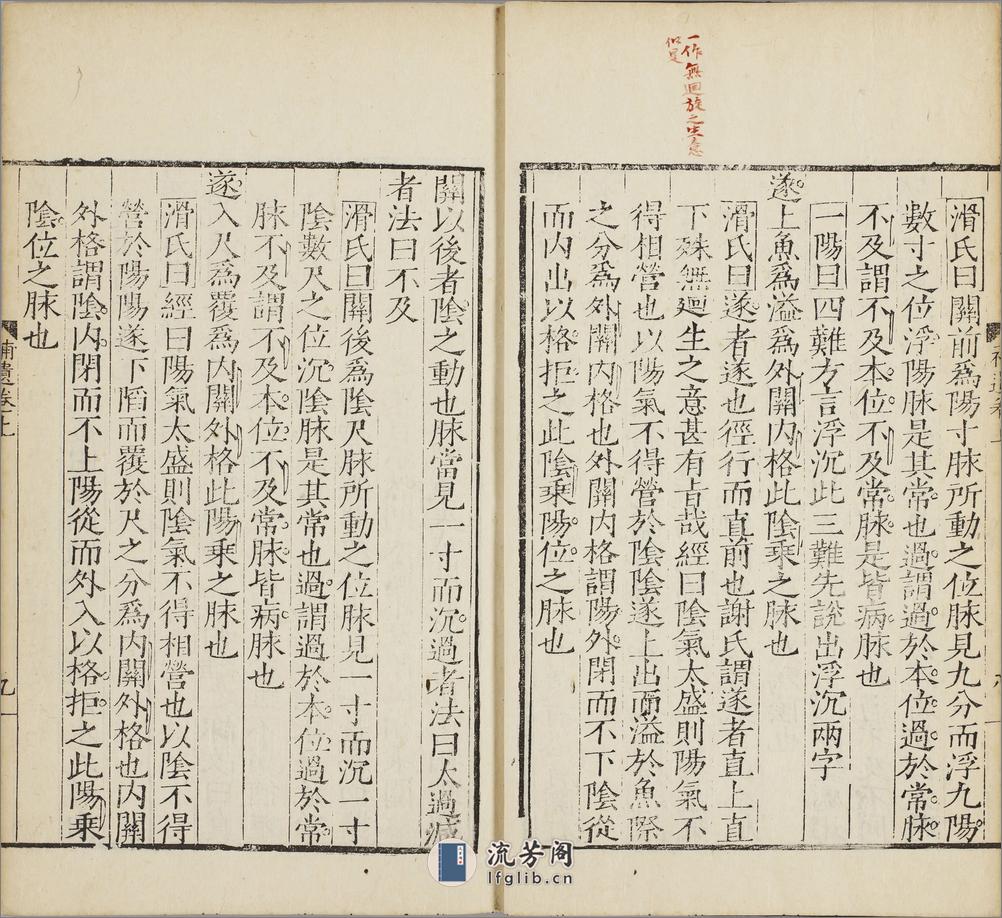 一作無迴旋之生意
似是
滑氏曰關前爲陽寸脉所動之位脉見九分而浮九陽
數寸之位浮陽脉是其常也過謂過於本位過於常脉
不及謂不及本位不及常脉是皆病脉也
一陽曰四難方言浮沉此三難先說出浮沉兩字
遂上魚爲溢爲外關内格此陰乗之脉也
滑氏曰遂者遂也徑行而直前也謝氏謂遂者直上直
下殊無迴生之意甚有㫖哉經曰陰氣太盛則陽氣不
得相營也以陽氣不得營於陰陰遂上出而溢於魚際
之分爲外關内格也外關内格謂陽外閉而不下陰從
而内出以格拒之此陰乗陽位之脉也
關以後者陰之動也脉當見一寸而沉過者法曰太過减
者法曰不及
滑氏曰關後爲陰尺脉所動之位脉見一寸而沉一寸
陰數尺之位沉陰脉是其常也過謂過於本位過於常
脉不及謂不及本位不及常脉皆病脉也
遂入尺爲覆爲内關外格此陽乗之脉也
滑氏曰經曰陽氣太盛則陰氣不得相營也以陰不得
營於陽陽遂下䧟而覆於尺之分爲内關外格也内關
外格謂陰内閉而不上陽從而外入以格拒之此陽乗
陰位之脉也
補遺卷上
九
流芳阁
lfglib.cn